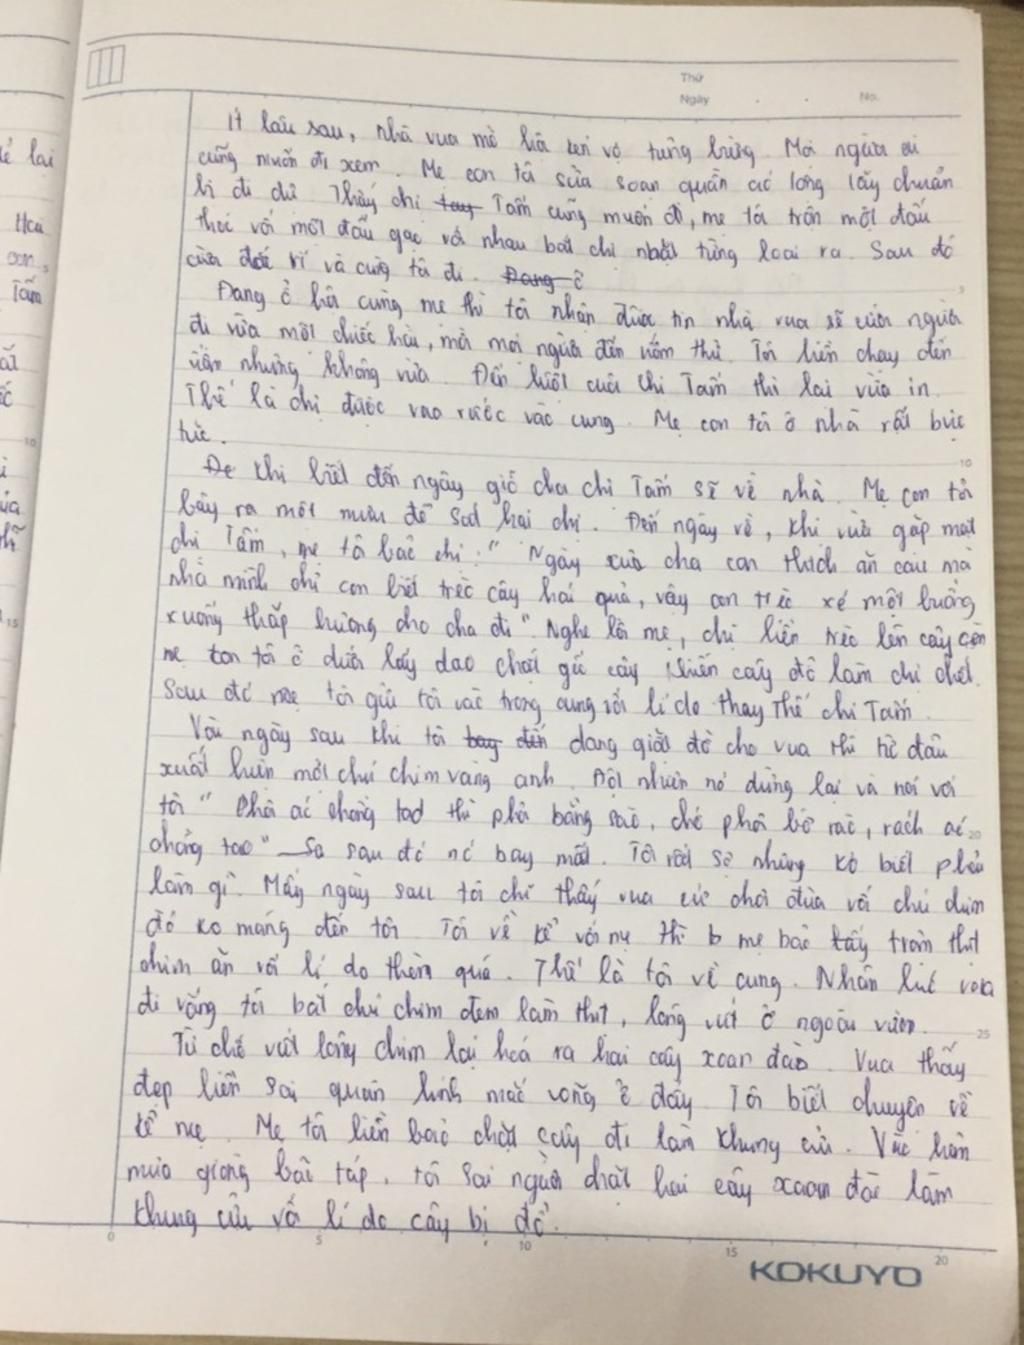 Thứ
Ngày No.
Ít lâu sau, nhà vua mở hội tưng bừng. Mọi người ai
cũng muốn đi xem. Mẹ con tôi sửa soạn quần áo lộng lẫy chuẩn
bị đi dự. Thấy chị Tấm cũng muốn đi, mẹ tôi trộn một đấu
thóc với một đấu gạo với nhau bắt chị nhặt từng loại ra. Sau đó
và cùng tôi đi. Đang ở
Đang ở hội cùng mẹ thì tôi nhận được tin nhà vua sẽ cưới người
đi vừa một chiếc hài, mời mọi người đến ướm thử. Tôi liền chạy đến
ướm nhưng không vừa. Đến lượt của chị Tấm thì lại vừa in.
Thế là chị được vua rước vào cung. Mẹ con tôi ở nhà rất bực
tức.
Để khi biết đến ngày giỗ cha chị Tấm sẽ về nhà. Mẹ con tôi
bày ra một mưu để hại chị. Đến ngày về, khi vừa gặp mặt
chị Tấm, mẹ tôi bảo chị: "Ngày xưa cha con thích ăn cau mà
nhà mình chỉ con biết trèo cây hái quả, vậy con trèo xé một buồng
xuống thắp hương cho cha đi". Nghe lời mẹ, chị liền trèo lên cây còn
mẹ con tôi ở dưới lấy dao chặt gốc cây khiến cây đổ làm chị chết.
Sau đó mẹ tôi gửi tôi vào trong cung với lí do thay thế chị Tấm.
Vài ngày sau khi tôi đang giặt đồ cho vua thì từ đâu
xuất hiện một chú chim vàng anh. Đột nhiên nó dừng lại và nói với
tôi "Phơi áo chồng tao thì phơi bằng sào, chớ phơi bờ rào, rách áo
chồng tao" sau đó nó bay mất. Tôi rất sợ nhưng ko biết phải
làm gì. Mấy ngày sau tôi chỉ thấy vua cứ chơi đùa với chú chim
đó ko màng đến tôi. Tôi về kể với mẹ thì mẹ bảo thịt
chim ăn với lí do thèm quá. Thế là tôi về cung. Nhân lúc vua
đi vắng tôi bắt chú chim đem làm thịt, lông vứt ở ngoài vườn.
Từ chỗ vứt lông chim lại hoá ra hai cây xoan đào. Vua thấy
đẹp liền sai quân lính mắc võng ở đấy. Tôi biết chuyện về
kể mẹ. Mẹ tôi liền bảo chặt cây đi làm khung cửi. Vào hôm
mưa giông bão táp, tôi sai người chặt hai cây xoan đào làm
khung cửi với lí do cây bị đổ.
5
10
15
20
25
0 5 10 15 20
KOKUYO